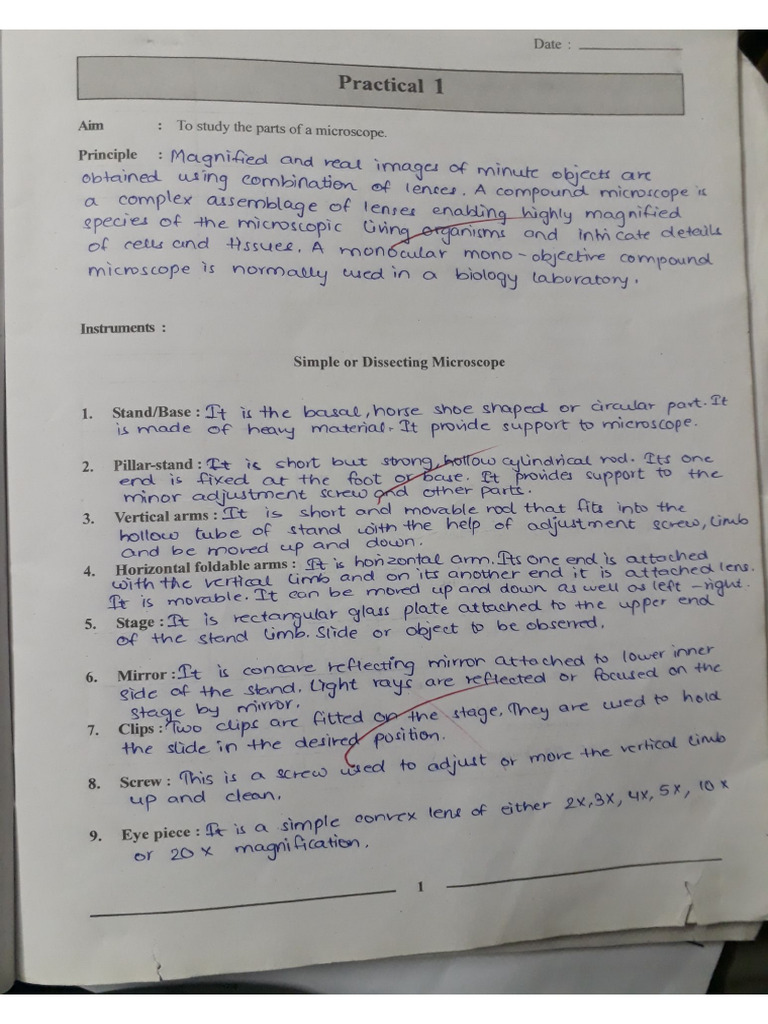 Date :
Practical 1
Aim : To study the parts of a microscope.
Principle : Magnified and real images of minute objects are
obtained using combination of lenses. A compound microscope is
a complex assemblage of lenses enabling highly magnified
species of the microscopic living organisms and intricate details
of cells and tissues. A monocular mono-objective compound
microscope is normally used in a biology laboratory.
Instruments :
Simple or Dissecting Microscope
1. Stand/Base : It is the basal, horse shoe shaped or circular part. It
is made of heavy material. It provide support to microscope.
2. Pillar-stand : It is short but strong, hollow cylindrical rod. Its one
end is fixed at the foot or base. It provides support to the
minor adjustment screw and other parts.
3. Vertical arms : It is short and movable rod that fits into the
hollow tube of stand with the help of adjustment screw, limb
and be moved up and down.
4. Horizontal foldable arms : It is horizontal arm. Its one end is attached
with the vertical limb and on its another end it is attached lens.
It is movable. It can be moved up and down as well as left-right.
5. Stage : It is rectangular glass plate attached to the upper end
of the stand limb. Slide or object to be observed.
6. Mirror : It is concave reflecting mirror attached to lower inner
side of the stand. Light rays are reflected or focused on the
stage by mirror.
7. Clips : Two clips are fitted on the stage. They are used to hold
the slide in the desired position.
8. Screw : This is a screw used to adjust or more the vertical limb
up and clean.
9. Eye piece : It is a simple convex lens of either 2x, 3x, 4x, 5x, 10 x
or 20 x magnification.
1